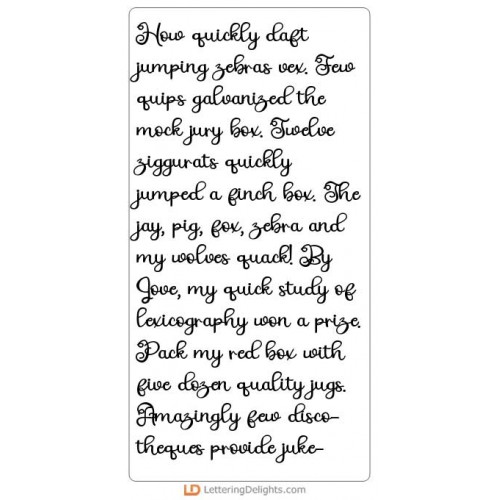 How quickly daft
jumping zebras vex. Few
quips galvanized the
mock jury box. Twelve
ziggurats quickly
jumped a finch box. The
jay, pig, fox, zebra and
my wolves quack! By
Jove, my quick study of
lexicography won a prize.
Pack my red box with
five dozen quality jugs.
Amazingly few disco-
theques provide juke-
LD LetteringDelights.com